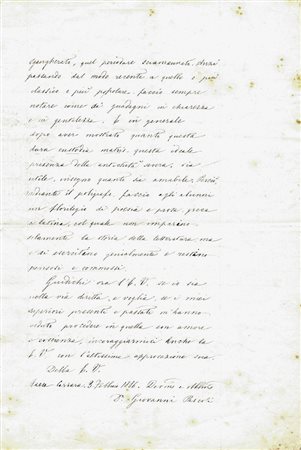 sgangherato, quel periodare scarmannato. Quindi
passando dal modo recente a quello e più
classico e più popolare, faccio sempre
notare come si guadagni in chiarezza
e in gentilezza. E in generale
dopo aver mostrato quanto questa
dura custodia materna, questa ideale
presenza della antichità severa, sia
utile, insegno quanto sia amabile,
mediante il poligrafo, faccio agli alunni
un florilegio di poesia e prosa greca
e latina, col quale non imparino
solamente la storia della letteratura ma
e si esercitino genialmente e restino
persuasi e commossi.
Giudichi ora l'E. V. se io sia
nella via diretta, e voglia, se i miei
superiori presenti e passati m'hanno
veduto procedere in quella con amore
e costanza, incoraggiarmici anche la
E. V. con l'altissima approvazione sua.
Della E. V.
Massa Carrara, 3 1886. Devmo e
Dr. Giovanni Pascoli